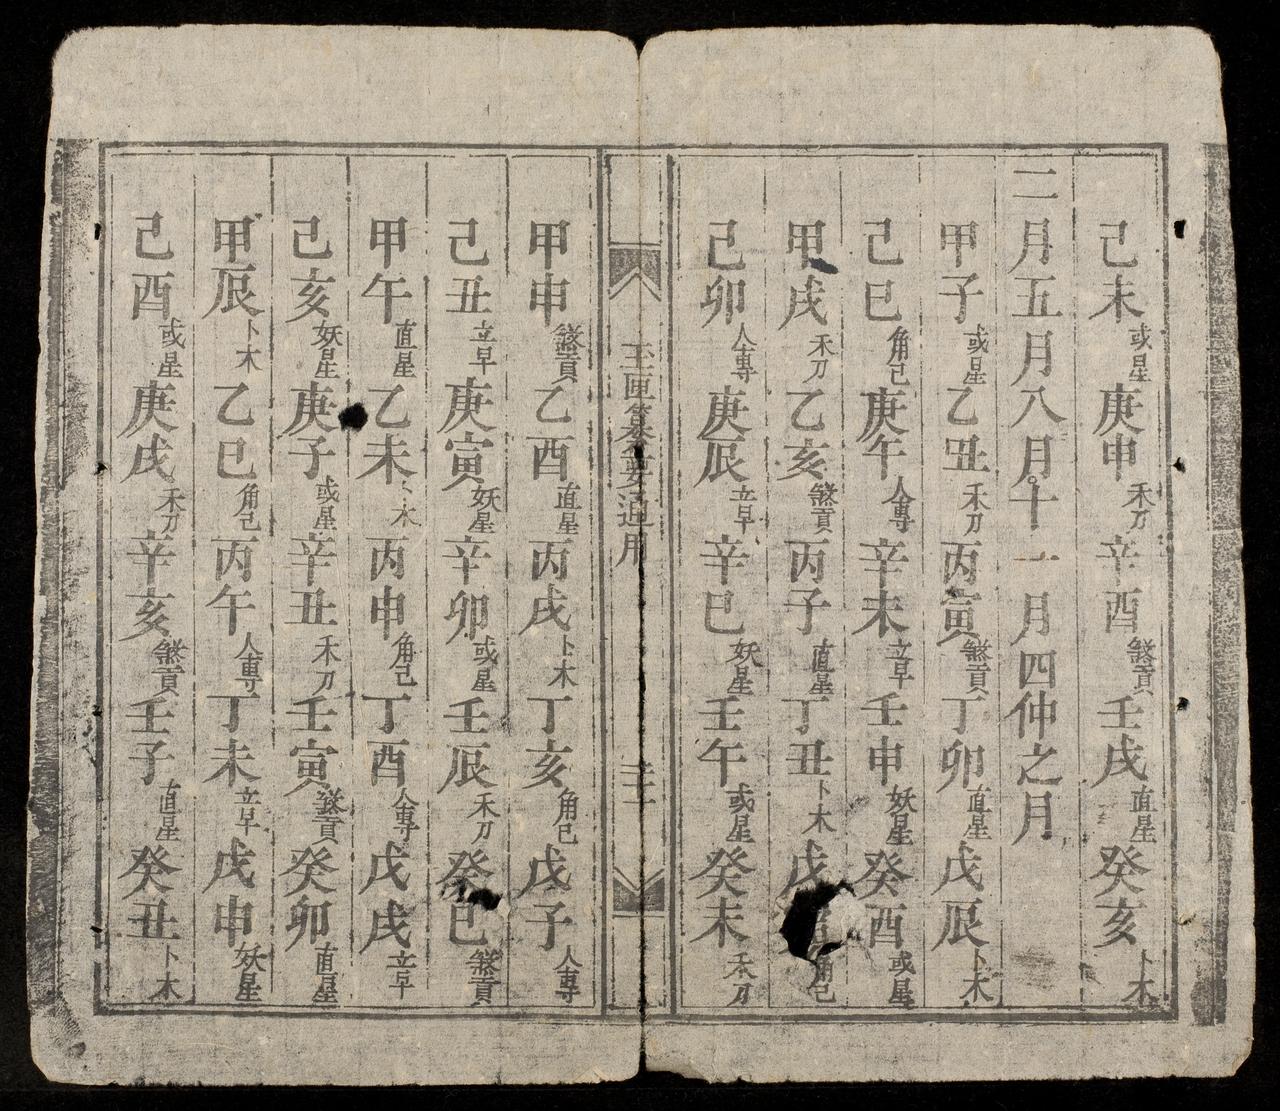 己未或星庚申禾刀辛酉煞貢壬戌直星癸亥卜木
二月五月八月十一月四仲之月
甲子或星乙丑禾刀丙寅煞貢丁卯直星戊辰卜木
己巳角己庚午人專辛未立早壬申妖星癸酉或星
甲戌禾刀乙亥煞貢丙子直星丁丑卜木戊角己
己卯人專庚辰立早辛巳妖星壬午或星癸未禾刀
玉匣纂要通用
甲申煞貢乙酉直星丙戌卜木丁亥角己戊子人專
己丑立早庚寅妖星辛卯或星壬辰禾刀癸巳煞貢
甲午直星乙未卜木丙申角己丁酉人專戊戌立早
己亥妖星庚子或星辛丑禾刀壬寅煞貢癸卯直星
甲辰卜木乙巳角己丙午人專丁未立早戊申妖星
己酉或星庚戌禾刀辛亥煞貢壬子直星癸丑卜木